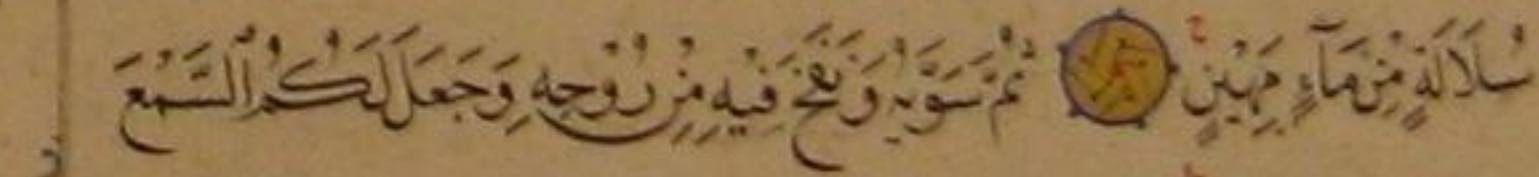 سُلَالَةٍ مِنْ مَآءٍ مَهِينٍ ثُمَّ سَوَّيهُ وَنَفَخَ فِيهِ مِنْ رُوحِهِ وَجَعَلَ لَكُمُ السَّمْعَ